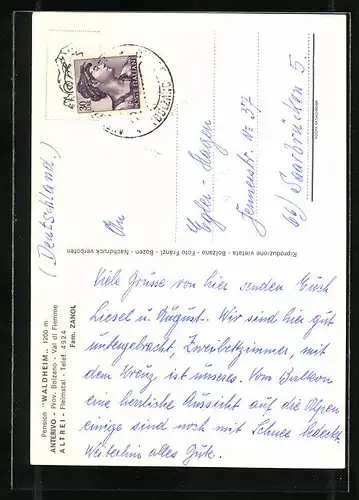 Pension "WALDHEIM" 1200 m
ANTERIVO - Prov. Bolzano - Val di Fiemme
ALTREI - Fleimstal - Telef. 4924
Fam. ZANOL
Viele Grüsse von hier senden Euch
Liesel u. August. Wir sind hier gut
untergebracht, Zweibettzimmer, mit
dem Kreuz ist unseres. Vom Balkon
eine herrliche Aussicht auf die Alpen
einige sind noch mit Schnee bedeckt.
Weiterhin alles Gute.
Riproduzione vietata - Bolzano - Foto Fränzl - Bozen - Nachdruck verboten
An
Egler-Hagen
Nr. 37
66) Saarbrücken 5
(Deutschland.)
BOLZANO
30